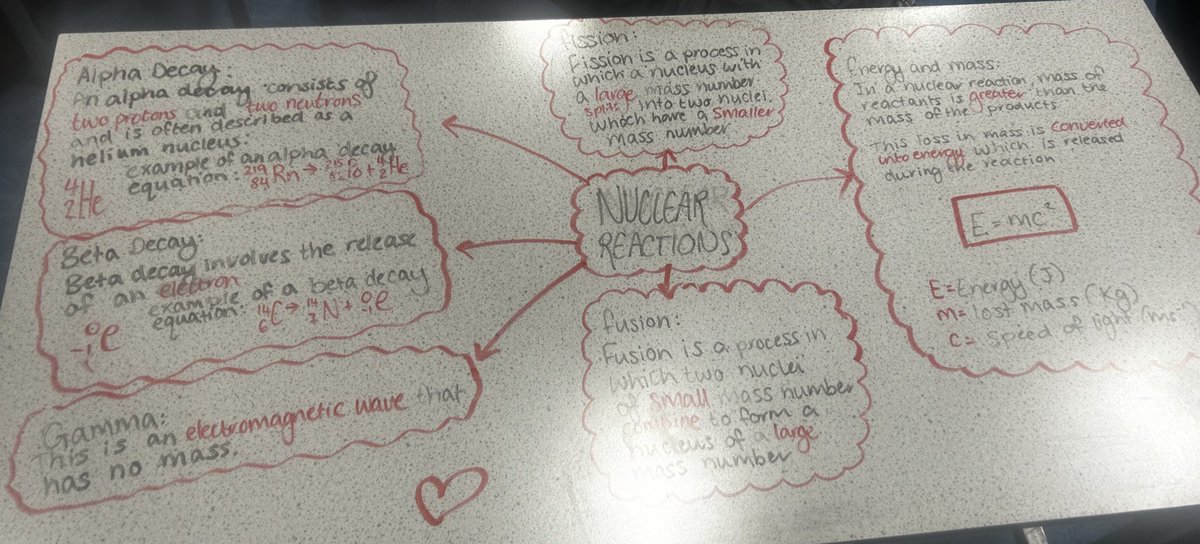 NUCLEAR
REACTIONS
Alpha Decay:
An alpha decay consists of
two protons and two neutrons
and is often described as a
helium nucleus.
example of an alpha decay
equation: ²¹⁹₈₄Rn → + ⁴₂He
⁴₂He
Beta Decay:
Beta decay involves the release
of an electron
example of a beta decay
equation: ¹⁴₆C → ¹⁴₇N + ⁰₋₁e
⁰₋₁e
Gamma:
This is an electromagnetic wave that
has no mass.
fission:
Fission is a process in
which a nucleus with
a large mass number
splits into two nuclei
which have a smaller
mass number
fusion:
Fusion is a process in
which two nuclei
of small mass number
combine to form a
nucleus of a large
mass number
Energy and mass:
In a nuclear reaction, mass of
reactants is greater than the
mass of the products
This loss in mass is converted
into energy which is released
during the reaction
E=mc²
E=Energy (J)
m= lost mass (kg)
C= speed of light (ms⁻¹